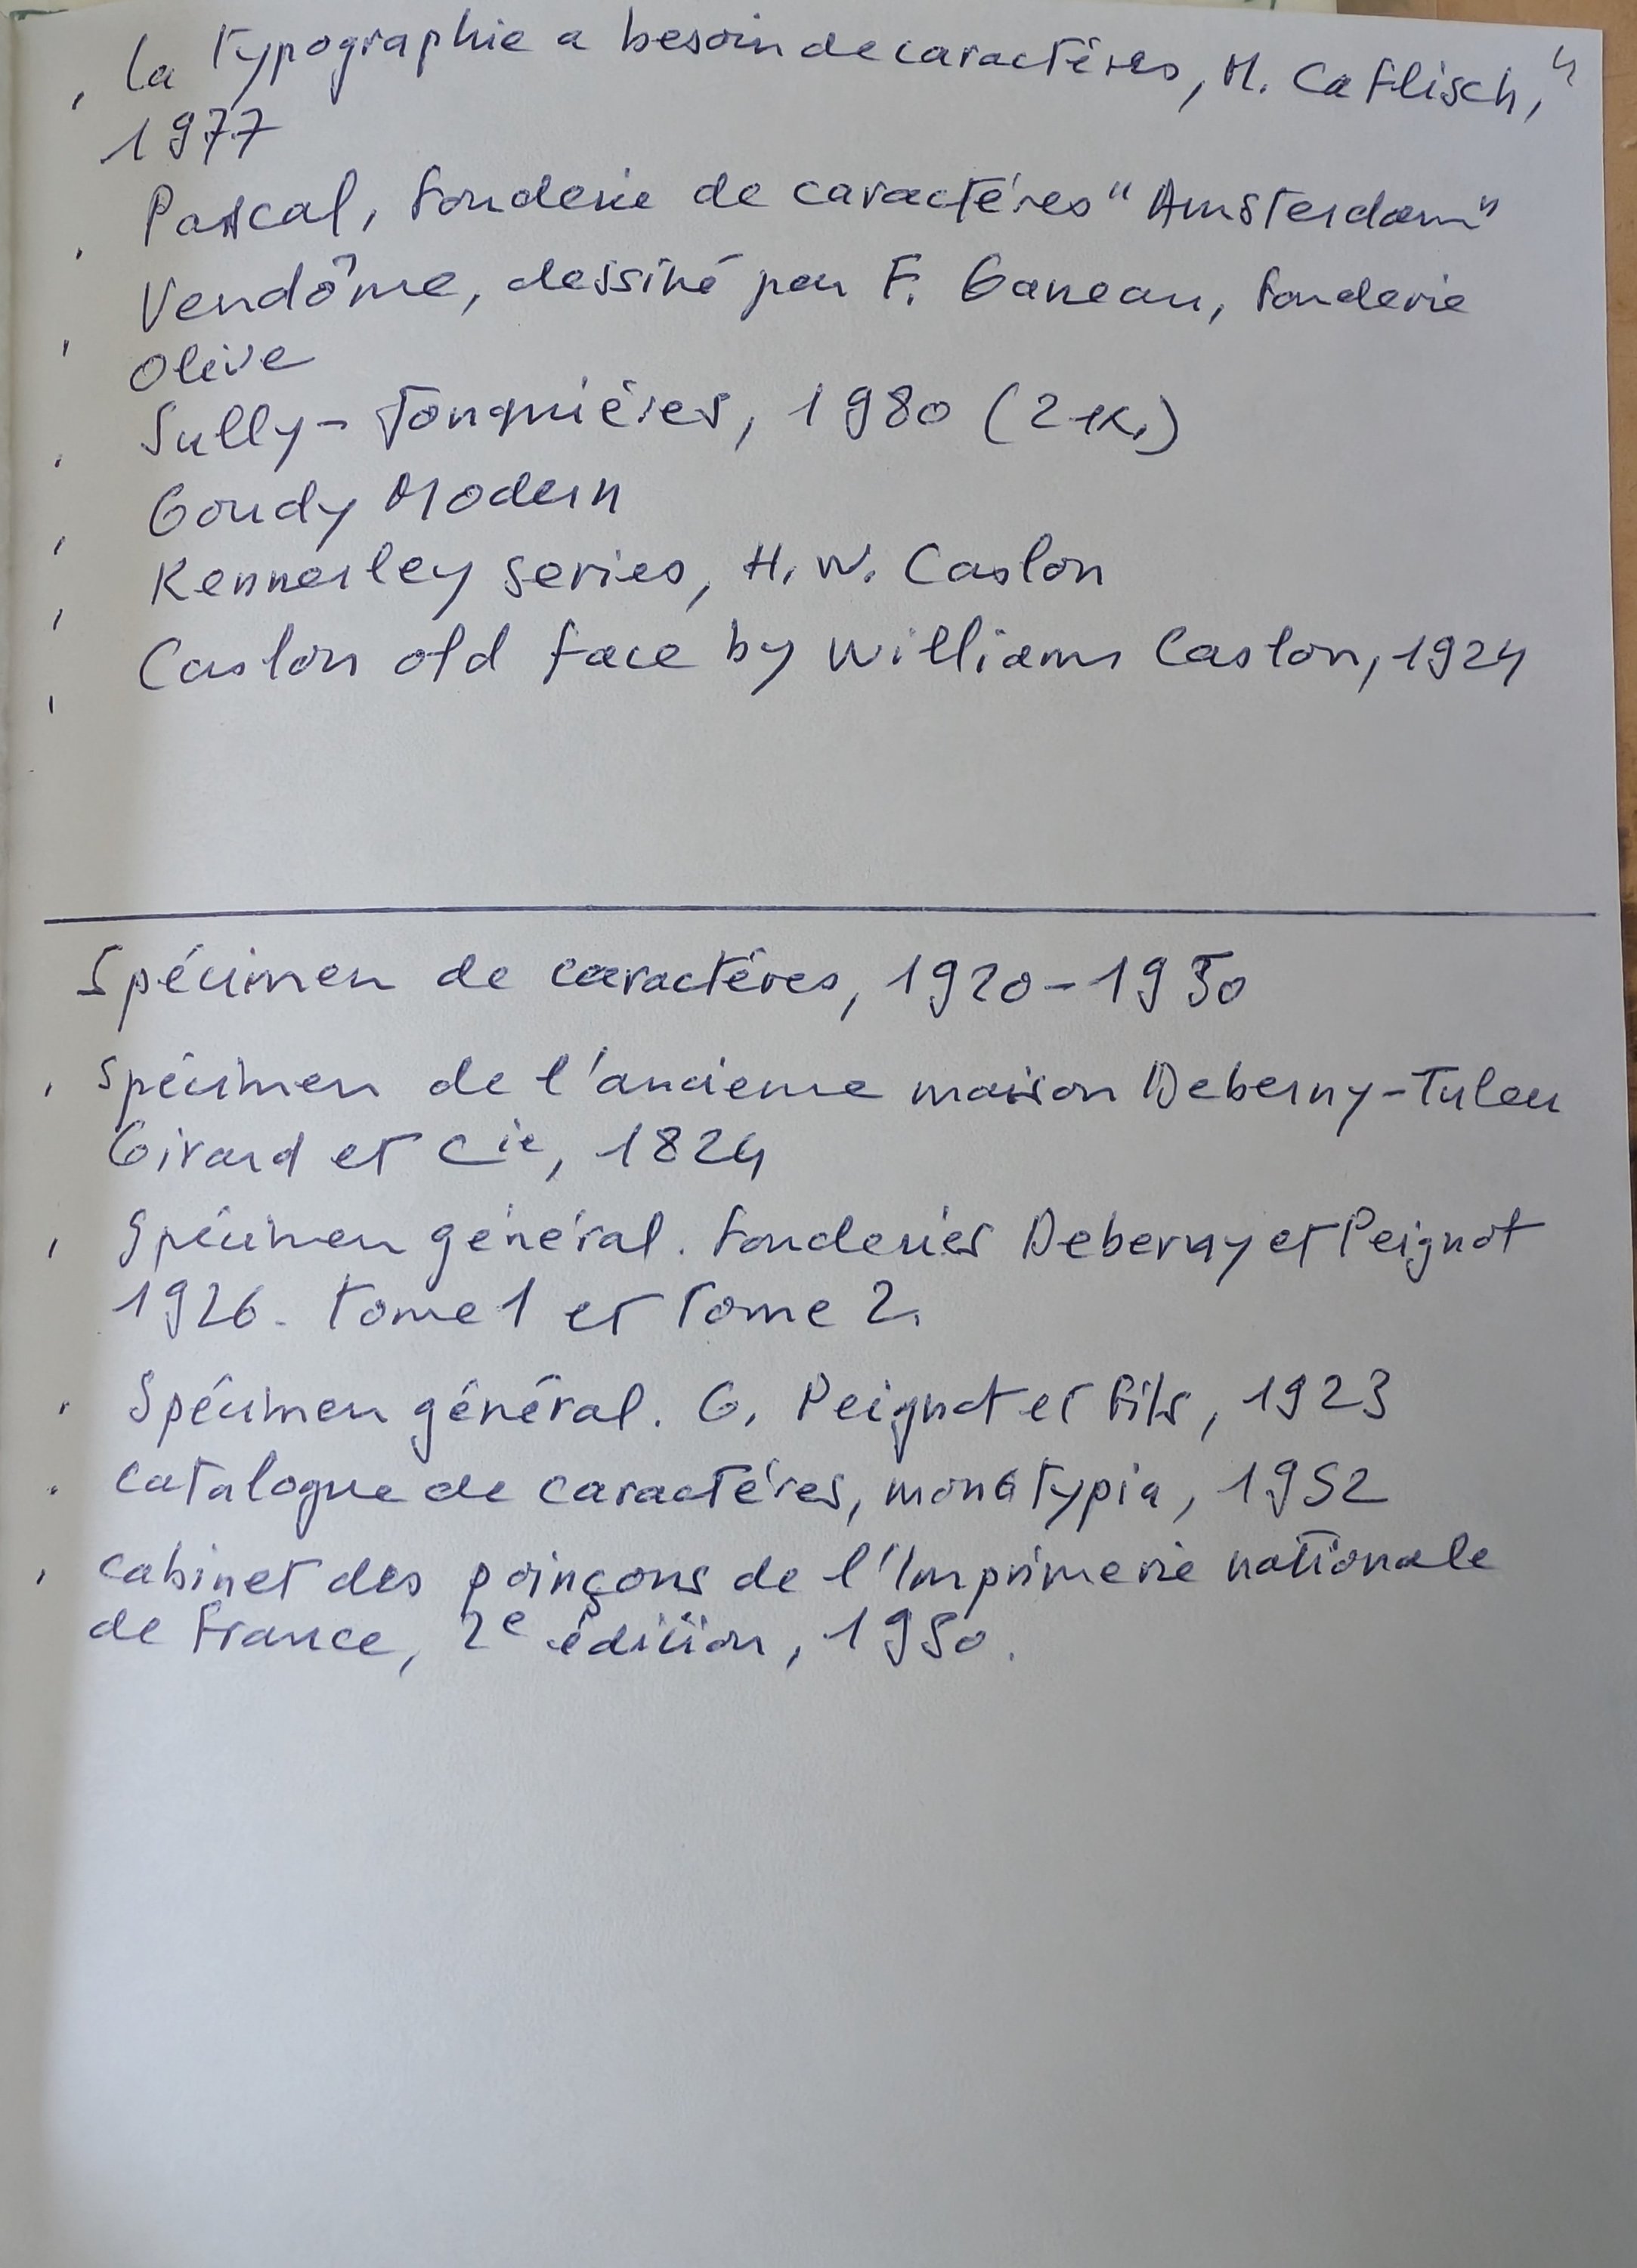 La Typographie a besoin de caractères, M. Caflisch,"
1977
Pascal, fonderie de caractères "Amsterdam"
Vendôme, dessiné par F. Ganeau, fonderie
Olive
Sully-Jonquières, 1980 (2 ex.)
Goudy Modern
Kennerley series, H. W. Caslon
Caslon old face by William Caslon, 1924
Spécimen de caractères, 1920-1950
Spécimen de l'ancienne maison Deberny-Tuleu
Girard et Cie, 1824
Spécimen général. Fonderies Deberny et Peignot
1926. Tome 1 et Tome 2.
Spécimen général. G. Peignot et fils, 1923
Catalogue de caractères, monotypia, 1952
Cabinet des poinçons de l'Imprimerie nationale
de France, 2e édition, 1950.